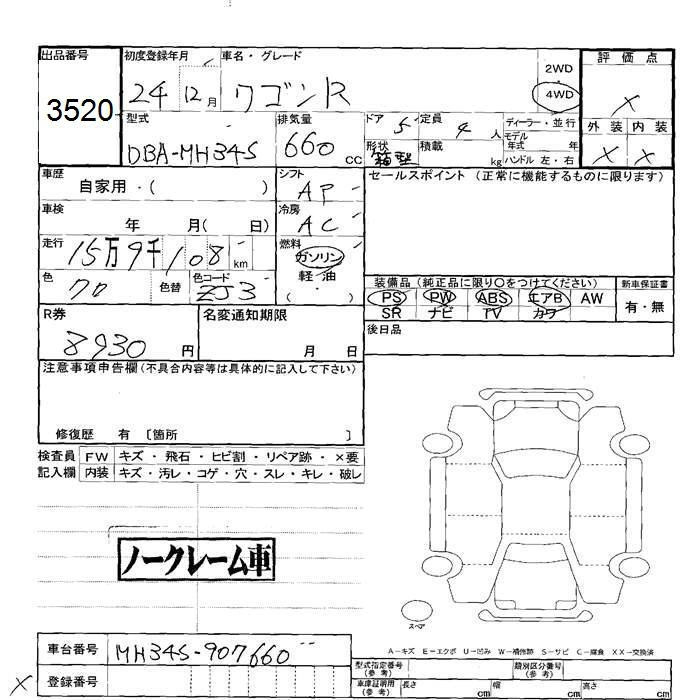 出品番号
3520
初度登録年月
24 12月
車名・グレード
ワゴンR
2WD
4WD
評価点
×
外装 内装
× ×
型式
DBA-MH34S
排気量
660 cc
ドア 5
定員 4 人
ディーラー・並行
形状 箱型
積載 kg
モデル年式 年
ハンドル 左・右
車歴
自家用・( )
シフト
AP
セールスポイント (正常に機能するものに限ります)
車検
年 月( 日)
冷房
AC
走行
15万9千108 km
燃料
ガソリン
軽・油
( ・ )
色
クロ
色替
色コード
ZJ3
装備品(純正品に限り○をつけてください)
新車保証書
PS PW ABS エアB AW
SR ナビ TV カワ
有・無
R券
8930 円
名変通知期限
月 日
後日品
注意事項申告欄(不具合内容等は具体的に記入して下さい)
修復歴 有 〔箇所 〕
検査員 FW キズ・飛石・ヒビ割・リペア跡・×要
記入欄 内装 キズ・汚レ・コゲ・穴・スレ・キレ・破レ
ノークレーム車
スペア
A－キズ E－エクボ U－凹み W－補修跡 S－サビ C－腐食 XX－交換済
車台番号
MH34S-907660
×
登録番号
型式指定番号
(参考)
類別区分番号
(参考)
車庫証明用
(参考)
長さ cm
幅 cm
高さ cm